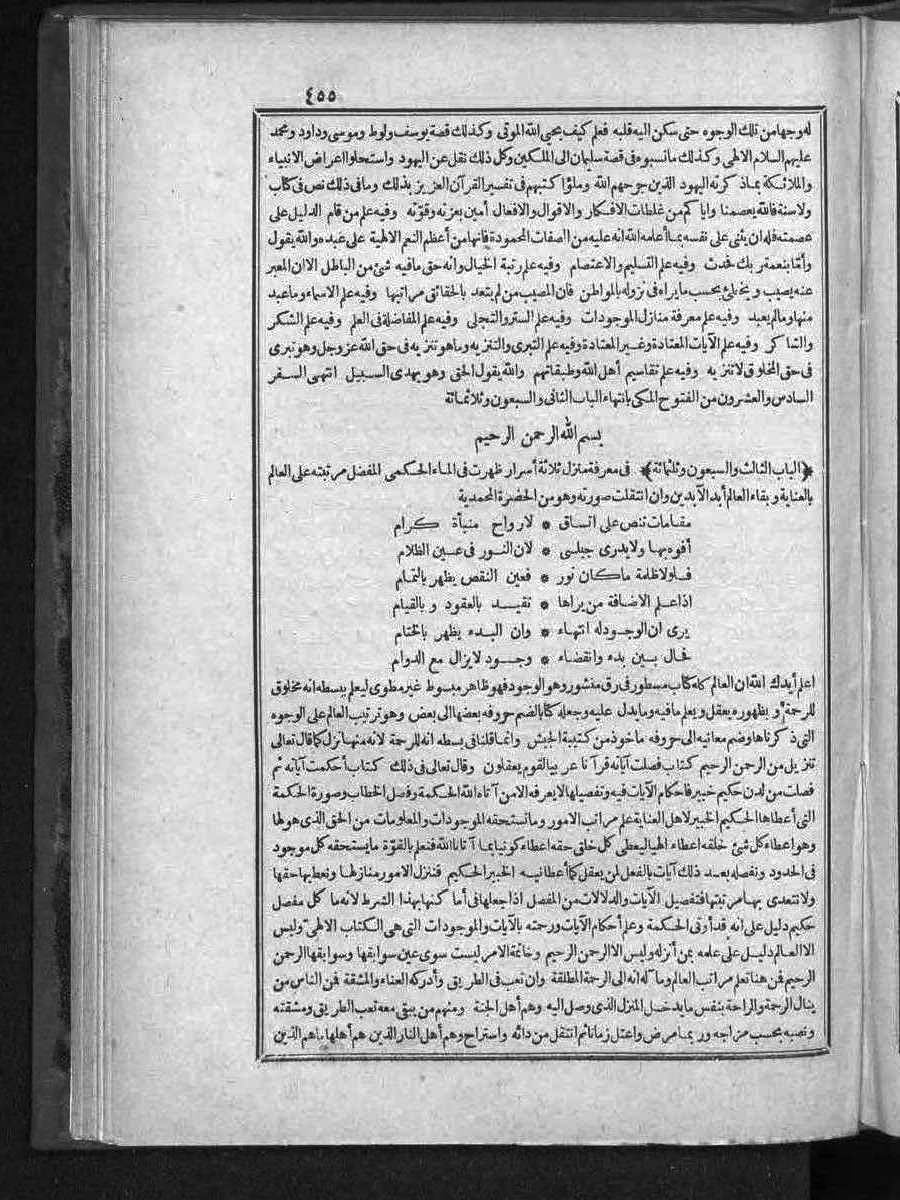 ٤٥٥
له وجها من تلك الوجوه حتى سكن اليه قلبه فعلم كيف يحيى الله الموتى وكذلك قصة يوسف ولوط وموسى وداود ومحمد
عليهم السلام الالهى وكذلك ما نسبوه فى قصة سليمان الى الملكين وكل ذلك نقل عن اليهود واستحلوا اعراض الانبياء
والملائكة بما ذكرته اليهود الذين جرحهم الله وملؤا كتبهم فى تفسير القرآن العزيز بذلك وما فى ذلك نص فى كتاب
ولا سنة فالله يعصمنا واياكم من غلطات الافكار والاقوال والافعال آمين بعزته وقوّته وفيه علم من قام الدليل على
عصمته فله ان يثنى على نفسه بما أعلمه الله انه عليه من الصفات المحمودة فانها من أعظم النعم الالهية على عبده والله يقول
وأمّا بنعمة ربك فحدث وفيه علم التسليم والاعتصام وفيه علم رتبة الخيال وانه حق ما فيه شئ من الباطل الا ان المعبر
عنه يصيب ويخطئ بحسب ما يراه فى نزوله بالمواطن فان المصيب من لم يتعد بالحقائق مراتبها وفيه علم الاسماء وما عبد
منها وما لم يعبد وفيه علم معرفة منازل الموجودات وفيه علم الستر والتجلى وفيه علم المفاضلة فى العلم وفيه علم الشكر
والشاكر وفيه علم الآيات المعتادة وغير المعتادة وفيه علم التبرى والتنزيه وما هو تنزيه فى حق الله عز وجل وهو تبرى
فى حق المخلوق لا تنزيه وفيه علم تقاسيم أهل الله وطبقاتهم والله يقول الحق وهو يهدى السبيل انتهى السفر
السادس والعشرون من الفتوح المكى بانتهاء الباب الثانى والسبعون وثلاثمائة
بسم الله الرحمن الرحيم
﴿الباب الثالث والسبعون وثلثمائة﴾ فى معرفة منزل ثلاثة أسرار ظهرت فى الماء الحكمى المفضل مرتبته على العالم
بالعناية وبقاء العالم أبد الآبدين وان انتقلت صورته وهو من الحضرة المحمدية
مقامات تنص على اتساق * لارواح منبأة كرام
أفوه بها ولا يدرى جليسى * لان النور فى عين الظلام
فلولا ظلمة ما كان نور * فعين النقص يظهر بالتمام
اذا علم الاضافة من يراها * تقيد بالعقود وبالقيام
يرى ان الوجود له انتهاء * وان البدء يظهر بالختام
فحال بين بدء وانقضاء * وجود لا يزال مع الدوام
اعلم أيدك الله ان العالم كله كتاب مسطور فى رق منشور وهو الوجود فهو ظاهر مبسوط غير مطوى ليعلم ببسطه انه مخلوق
للرحمة وبظهوره يعقل ويعلم ما فيه وما يدل عليه وجعله كتابا لضم حروفه بعضها الى بعض وهو ترتيب العالم على الوجوه
التى ذكرناها وضم معانيه الى حروفه مأخوذ من كتيبة الجيش وانما قلنا فى بسطه انه للرحمة لانه منها نزل كما قال تعالى
تنزيل من الرحمن الرحيم كتاب فصلت آياته قرآنا عربيا لقوم يعقلون وقال تعالى فى ذلك كتاب أحكمت آياته ثم
فصلت من لدن حكيم خبير فاحكام الآيات فيه وتفصيلها لا يعرفه الا من آتاه الله الحكمة وفصل الخطاب وصورة الحكمة
التى أعطاها الحكيم الخبير لاهل العناية علم مراتب الامور وما تستحقه الموجودات والمعلومات من الحق الذى هو لها
وهو اعطاء كل شئ خلقه اعطاء الهيا ليعطى كل خلق حقه اعطاء كونيا بما آتانا الله فنعلم بالقوّة ما يستحقه كل موجود
فى الحدود ونفصله بعد ذلك آيات بالفعل لمن يعقل كما أعطانيه الخبير الحكيم فننزل الامور منازلها ونعطيها حقها
ولا نتعدى بها مرتبتها فتفصيل الآيات والدلالات من المفصل اذا جعلها فى أماكنها بهذا الشرط لانه ما كل مفصل
حكيم دليل على انه قد أوتى الحكمة وعلم أحكام الآيات ورحمته بالآيات والموجودات التى هى الكتاب الالهى وليس
الا العالم دليل على علمه بمن أنزله وليس الا الرحمن الرحيم وخاتمة الامر ليست سوى عين سوابقها وسوابقها الرحمن
الرحيم فمن هنا تعلم مراتب العالم وما آله انه الى الرحمة المطلقة وان تعب فى الطريق وأدركه العناء والمشقة فمن الناس من
ينال الرحمة والراحة بنفس ما يدخل المنزل الذى وصل اليه وهم أهل الجنة ومنهم من يبقى معه تعب الطريق ومشقته
ونصبه بحسب مزاجه وربما مرض واعتل زمانا ثم انتقل من دائه واستراح وهم أهل النار الذين هم أهلها ما هم الذين